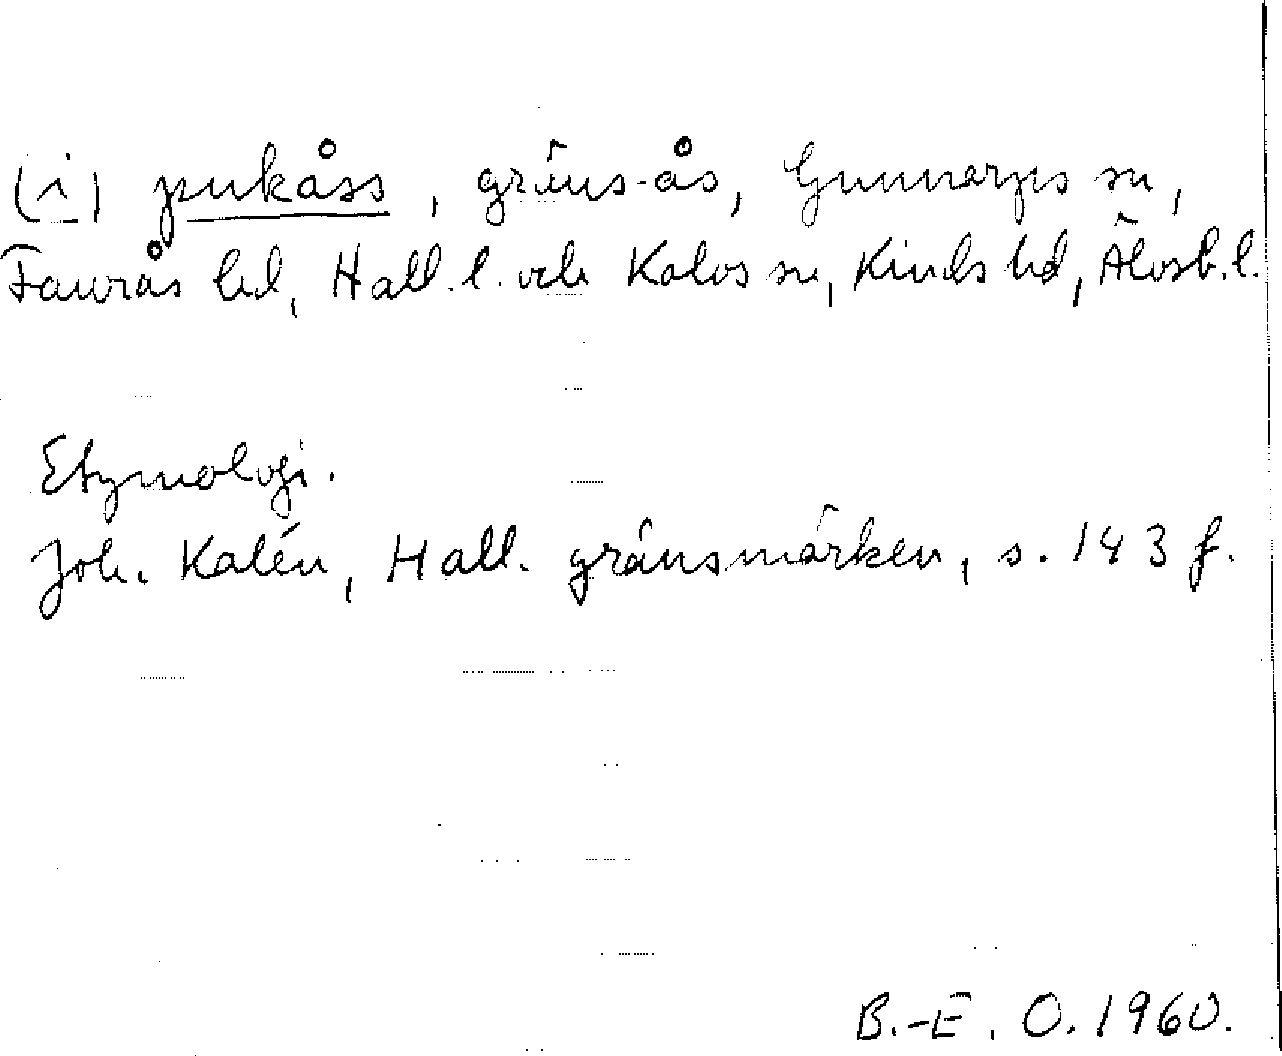 (i) pukåss, gräns-ås, Gunnarps sn,
Faurås hd, Hall. l. och Kalvs sn, Kinds hd, Älvsb. l.
Etymologi.
Joh. Kalén, Hall. gränsmärken, s. 143 f.
B.-E. O. 1960.